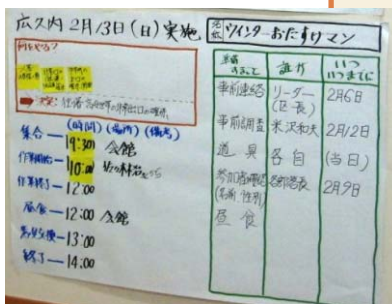 広久内 2月13日(日) 実施
名称 ウインターおたすけマン
何をやる?
決定:
(時間) (場所) (備考)
集合 — 9:30 会館
作業開始 — 10:00
作業終了 — 12:00
昼食 — 12:00 会館
意見交換 — 13:00
終了 — 14:00
準備すること 誰が いついつまでに
事前連絡 リーダー(区長) 2月6日
事前調査 米沢和夫 2月12日
道具 各自 (当日)
参加者確認(名前、性別) 各部落長 2月9日
昼食